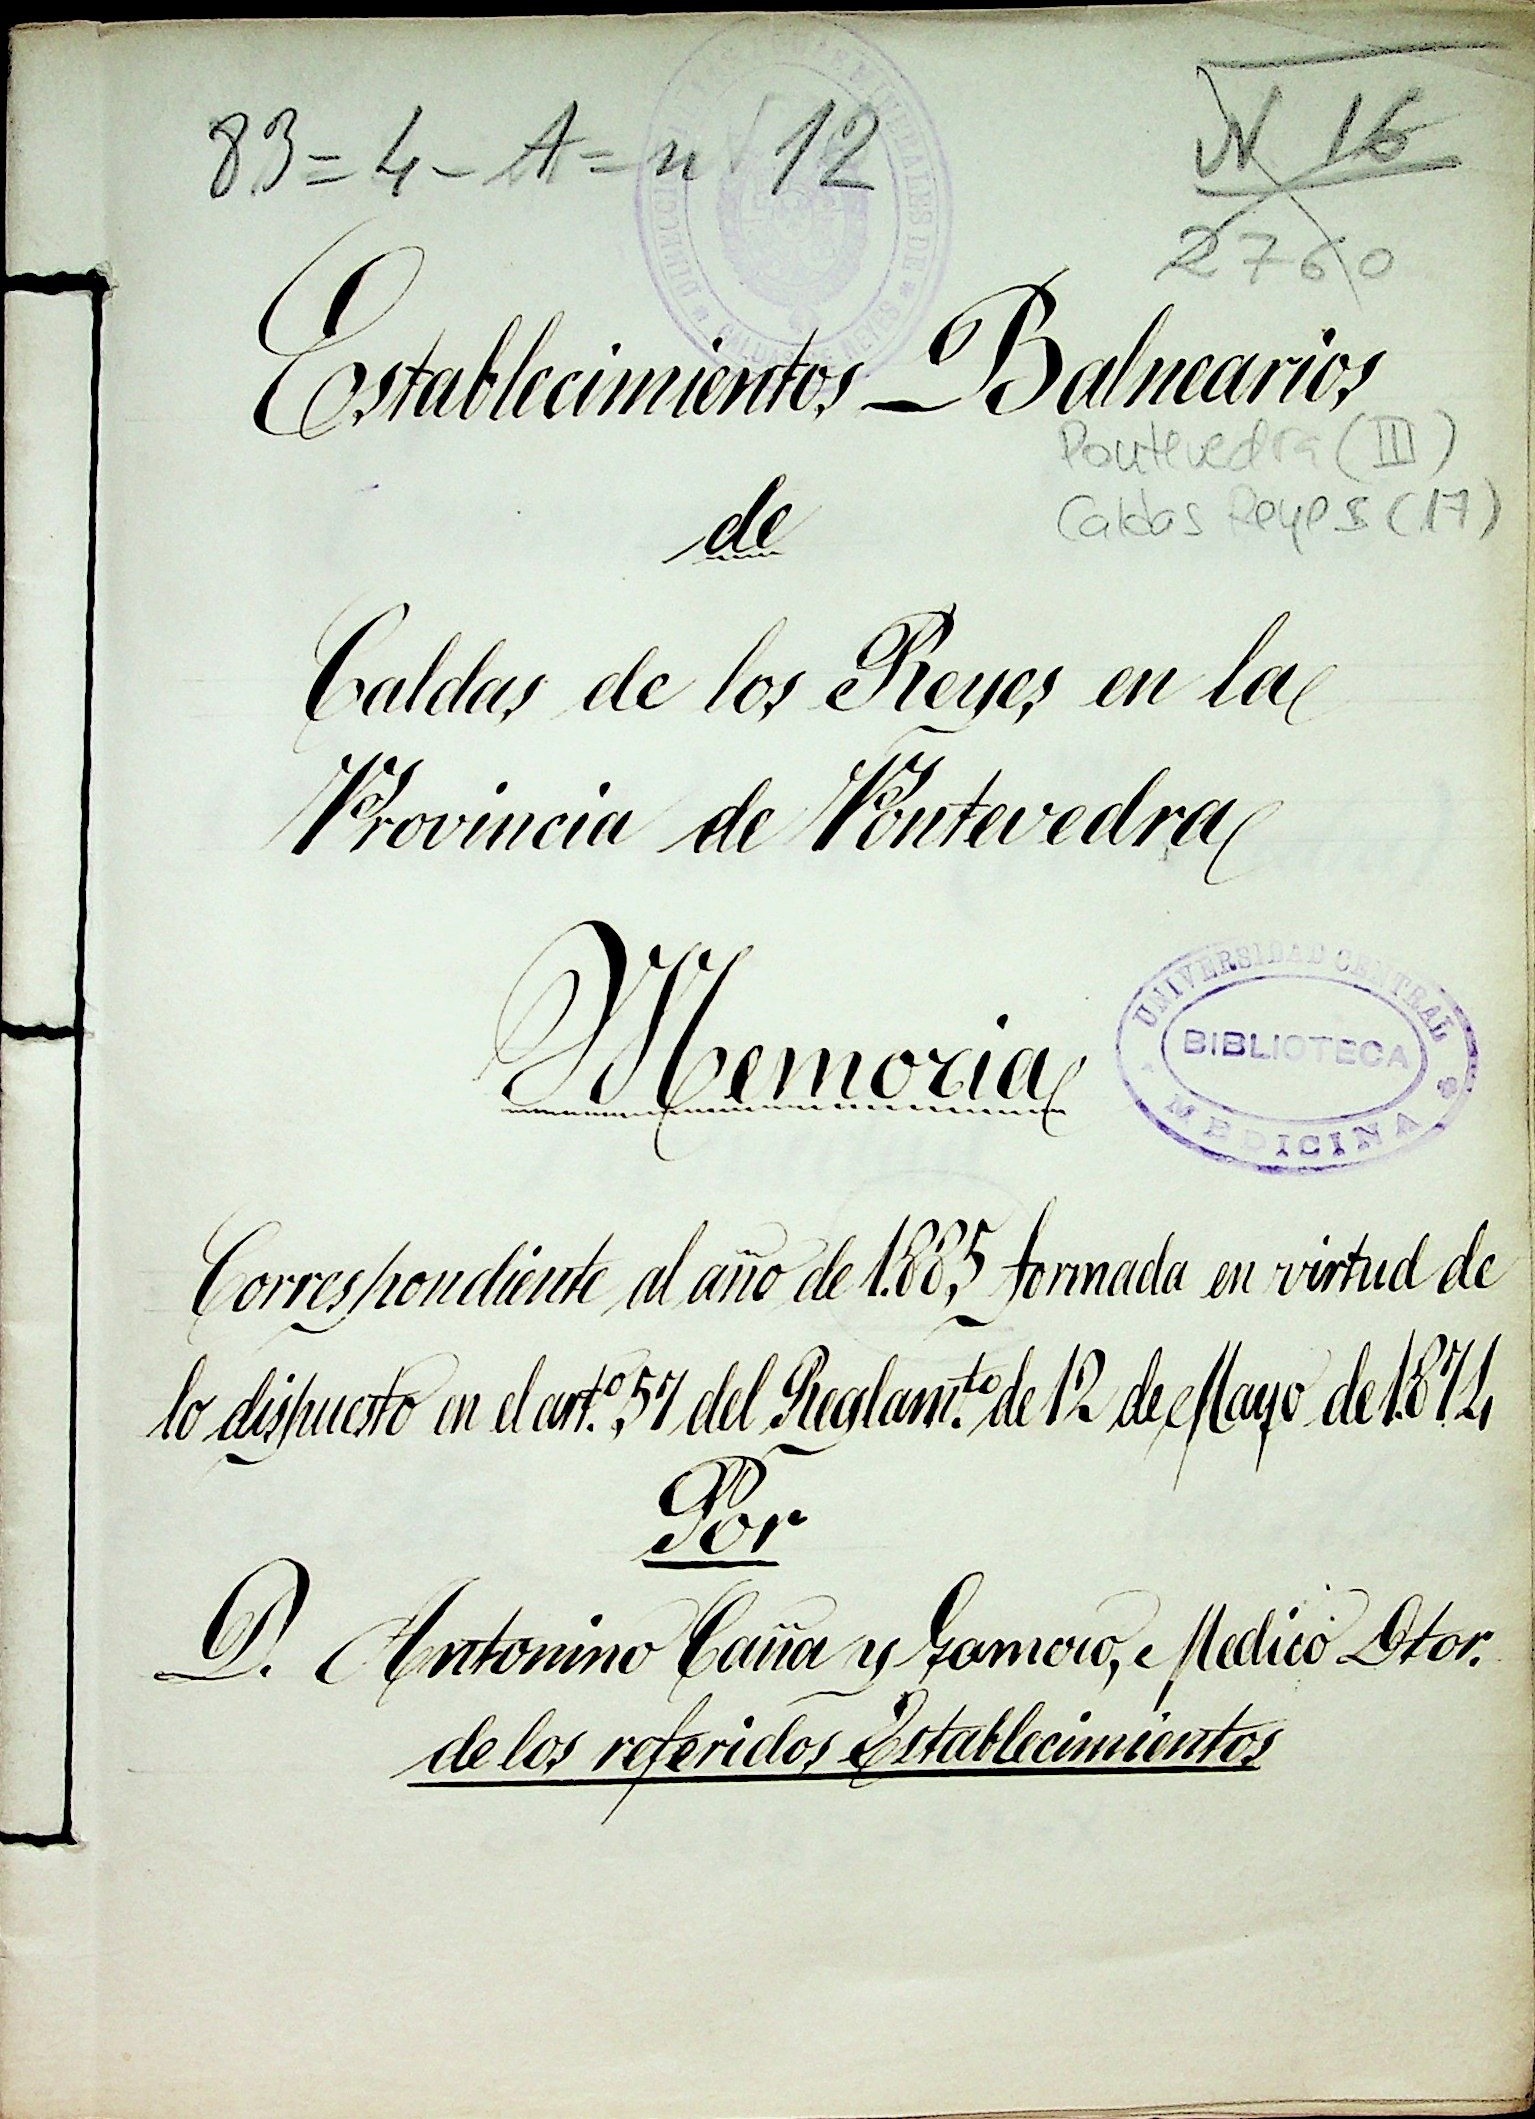 83=4-A=n 12
N 16
2760
Establecimientos Balnearios
Pontevedra (III)
de
Caldas Reyes (17)
Caldas de los Reyes en la
Provincia de Pontevedra
Memoria
UNIVERSIDAD CENTRAL
BIBLIOTECA
MEDICINA
Correspondiente al año de 1.885 formada en virtud de
lo dispuesto en el art.º 57 del Reglam.to de 12 de Mayo de 1.874
Por
D. Antonino Caña y Medico Dtor.
de los referidos Establecimientos